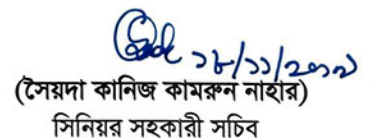 ১৮/১১/২০১৯
(সৈয়দা কানিজ কামরুন নাহার)
সিনিয়র সহকারী সচিব